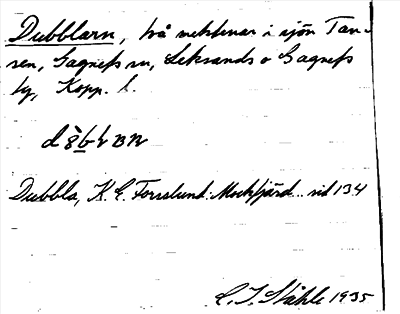 Dubblarn, två mektenar i sjön Tan-
sen, Gagnefs sn, Leksands o Gagnefs
tg, Kopp. l.
Dubbla, K. E. Forsslund: Mockfjärd.. sid 134
C. I. Ståhle 1935